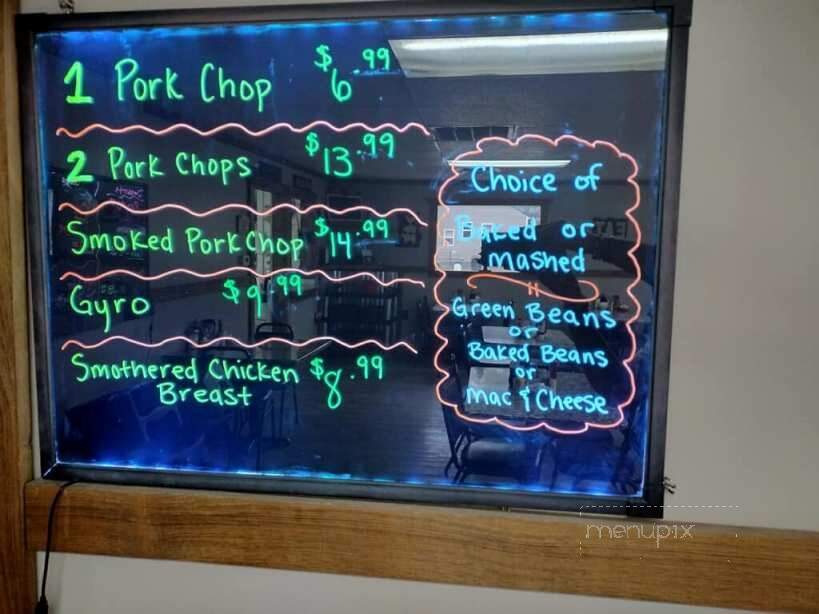 1 Pork Chop $6.99
2 Pork Chops $13.99
Smoked Pork Chop $14.99
Gyro $9.99
Smothered Chicken $8.99
Breast
Choice of
Baked or
mashed
Green Beans
or
Baked Beans
or
mac & Cheese
menupix